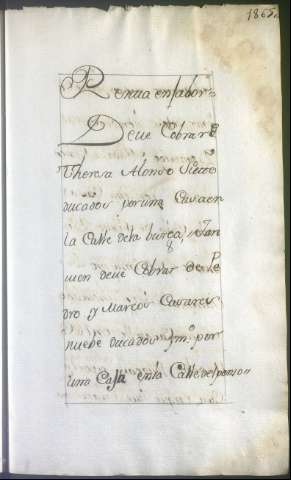 1865
Renta en fabor
Deue Cobrar
Theresa Alonso Siete
ducados por una Casa en
la Calle de la burga, Tan
uien deue Cobrar de Pe
dro y Marcos Casares
nuebe ducados por
una Casa en la Calle del